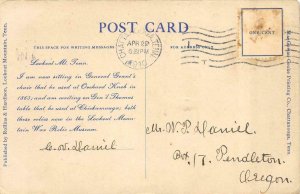 POST CARD
THIS SPACE FOR WRITING MESSAGES
FOR ADDRESS ONLY
ONE CENT
APR 29
630PM
1910
TENN.
Lookout Mt. Tenn.
I am now sitting in General Grant's
chair that he used at Orchard Knob in
1863; and am writing on Gen'l Thomas
table that he used at Chickamauga; both
these relics now in the Lookout Moun-
tain War Relic Museum.
C. W. Daniel
Mr. W. P. Daniel.
Box 17, Pendleton,
Oregon.
Lookout Mountain, Tenn.
Published by
Chattanooga, Tenn